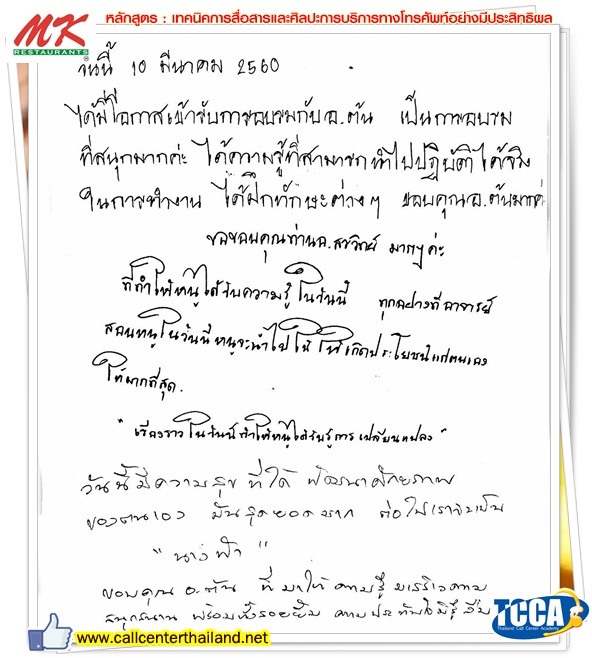 หลักสูตร : เทคนิคการสื่อสารและศิลปะการบริการทางโทรศัพท์อย่างมีประสิทธิผล
MK
RESTAURANTS
วันนี้ 10 มีนาคม 2560
ได้มีโอกาสเข้ารับการอบรมกับอ.ต้น เป็นการอบรม
ที่สนุกมากค่ะ ได้ความรู้ที่สามารถนำไปปฏิบัติได้จริง
ในการทำงาน ได้ฝึกทักษะต่างๆ ขอบคุณอ.ต้นมากค่ะ
ขอขอบคุณท่านอ. มากๆค่ะ
ที่ทำให้หนูได้รับความรู้ในวันนี้ ทุกอย่างที่อาจารย์
สอนหนูในวันนี้หนูจะนำไปใช้ให้เกิดประโยชน์แก่ตนเอง
ให้มากที่สุด.
"เรื่องราวในวันนี้ทำให้หนูได้รับรู้การเปลี่ยนแปลง"
วันนี้มีความสุข ที่ได้ พัฒนาศักยภาพ
ของตนเอง มันสุดยอดมาก ต่อไปเราจะเป็น
"นางฟ้า"
ขอบคุณ อ.ต้น ที่มาให้ความรู้ บรรยากาศ
สนุกสนาน พร้อมทั้งรอยยิ้ม ความประทับใจมิรู้ลืม
TCCA
Thailand Call Center Academy
www.callcenterthailand.net